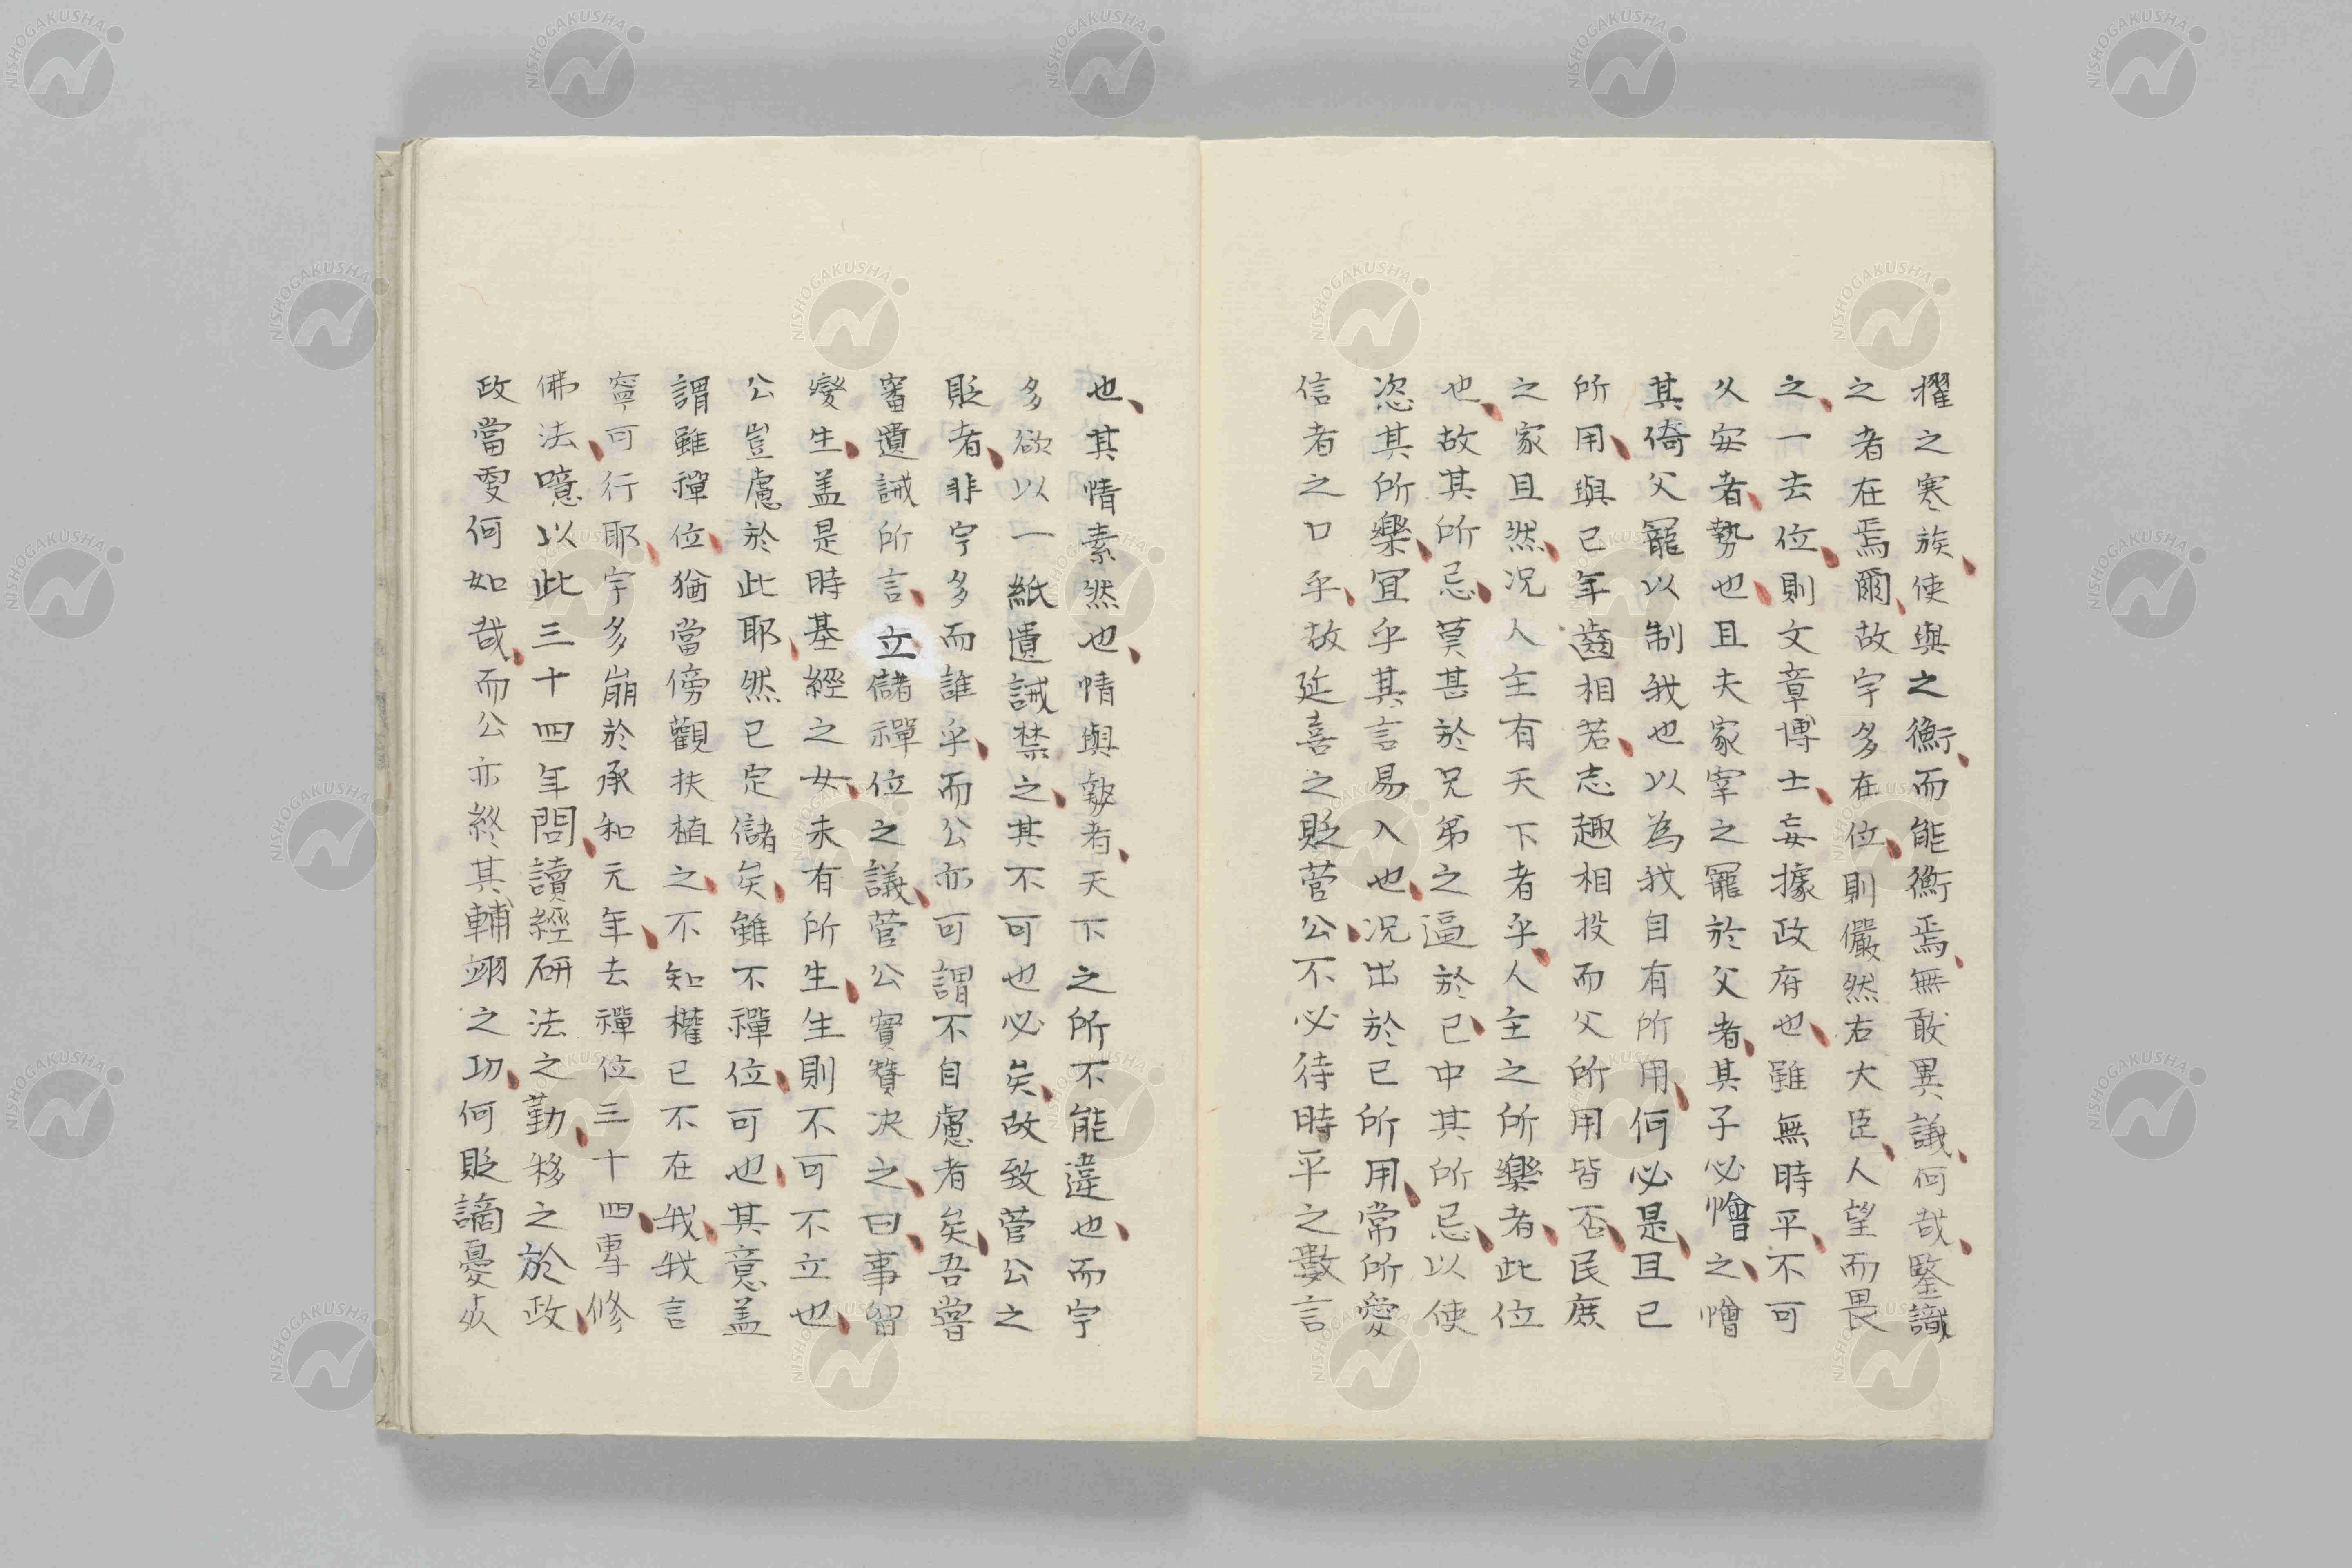 擢之寒族、使與之衡、而能衡焉、無敢異議、何哉、鑒識
之者在焉爾、故宇多在位、則儼然右大臣、人望而畏
之、一去位、則文章博士、妄據政府也、雖無時平、不可
久安者、勢也、且夫家宰之寵於父者、其子必憎之、憎
其倚父寵以制我也以為我自有所用、何必是、且已
所用、與已年齒相若、志趣相投而父所用皆否、民庶
之家且然、况人主有天下者乎、人主之所樂者、此位
也、故其所忌、莫甚於兄弟之逼於已、中其所忌、以使
恣其所樂、宜乎其言易入也、况出於已所用、常所愛
信者之口乎、故延喜之貶菅公、不必待時平之數言
也、其情素然也、情與勢者、天下之所不能違也、而宇
多欲以一紙遺誡禁之、其不可也必矣、故致菅公之
貶者、非宇多而誰乎、而公亦可謂不自慮者矣、吾嘗
審遺誡所言、立儲禪位之議、菅公實贊决之、曰、事留
變生、盖是時基經之女、未有所生、生則不可不立也、
公豈慮於此耶、然已定儲矣、雖不禪位、可也、其意盖
謂雖禪位、猶當傍觀扶植之、不知權已不在我、我言
寧可行耶、宇多崩於承和元年、去禪位三十四、專修
佛法、噫以此三十四年間、讀經研法之勤、移之於政、
政當更何如哉、而公亦終其輔翊之功、何貶謫憂死